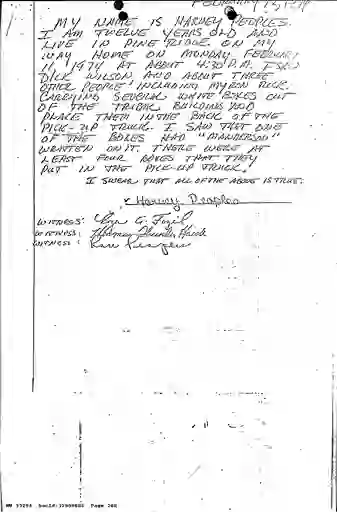 FEBRUARY 13, 1974
MY NAME IS HARVEY PEOPLES.
I AM TWELVE YEARS OLD AND
LIVE IN PINE RIDGE. ON MY
WAY HOME ON MONDAY FEBRUARY
11, 1974 AT ABOUT 4:30 P.M. I SAW
DICK WILSON AND ABOUT THREE
OTHER PEOPLE INCLUDING MYRON ROCK
CARRYING SEVERAL WHITE BOXES OUT
OF THE TRIBAL BUILDING AND
PLACE THEM IN THE BACK OF THE
PICK-UP TRUCK. I SAW THAT ONE
OF THE BOXES HAD "MANDERSON"
WRITTEN ON IT. THERE WERE AT
LEAST FOUR BOXES THAT THEY
PUT IN THE PICK-UP TRUCK.
I SWEAR THAT ALL OF THE ABOVE IS TRUE.
x Harvey Peoples
WITNESS:
WITNESS: Thunder Hawk
WITNESS: Peoples
Page 268